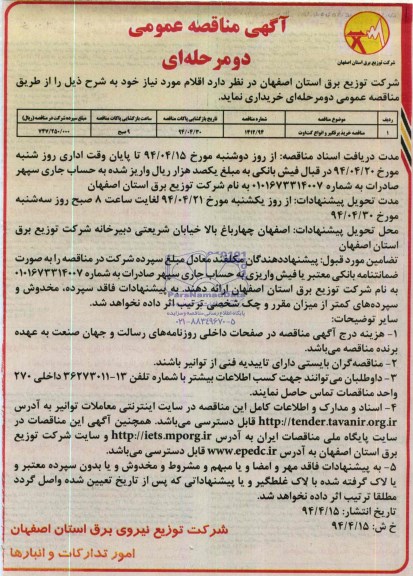 آگهی مناقصه عمومی
دومرحله‌ای
شرکت توزیع برق استان اصفهان
شرکت توزیع برق استان اصفهان در نظر دارد اقلام مورد نیاز خود به شرح ذیل را از طریق
مناقصه عمومی دومرحله‌ای خریداری نماید.
ردیف موضوع مناقصه شماره مناقصه تاریخ بازگشایی پاکات مناقصه ساعت بازگشایی پاکات مناقصه مبلغ سپرده شرکت در مناقصه (ریال)
۱ مناقصه خرید برقگیر و انواع کت‌اوت ۱۴۱۲/۹۴ ۹۴/۰۴/۳۰ ۹ صبح ۷۴۷/۲۵۰/۰۰۰
مدت دریافت اسناد مناقصه: از روز دوشنبه مورخ ۹۴/۰۴/۱۵ تا پایان وقت اداری روز شنبه
مورخ ۹۴/۰۴/۲۰ در قبال فیش بانکی به مبلغ یکصد هزار ریال واریز شده به حساب جاری سپهر
صادرات به شماره ۰۱۰۱۶۷۳۳۱۴۰۰۷ به نام شرکت توزیع برق استان اصفهان
مدت تحویل پیشنهادات: از روز یکشنبه مورخ ۹۴/۰۴/۲۱ لغایت ساعت ۸ صبح روز سه‌شنبه
مورخ ۹۴/۰۴/۳۰
محل تحویل پیشنهادات: اصفهان چهارباغ بالا خیابان شریعتی دبیرخانه شرکت توزیع برق
استان اصفهان
تضامین مورد قبول: پیشنهاددهندگان مکلفند معادل مبلغ سپرده شرکت در مناقصه را به صورت
ضمانتنامه بانکی معتبر یا فیش واریزی به حساب جاری سپهر صادرات به شماره ۰۱۰۱۶۷۳۳۱۴۰۰۷
به نام شرکت توزیع برق استان اصفهان ارائه دهند. به پیشنهادات فاقد سپرده، مخدوش و
سپرده‌های کمتر از میزان مقرر و چک شخصی ترتیب اثر داده نخواهد شد.
سایر توضیحات:
۱- هزینه درج آگهی مناقصه در صفحات داخلی روزنامه‌های رسالت و جهان صنعت به عهده
برنده مناقصه می‌باشد.
۲- مناقصه‌گران بایستی دارای تاییدیه فنی از توانیر باشند.
۳- داوطلبان می‌توانند جهت کسب اطلاعات بیشتر با شماره تلفن ۱۳-۳۶۲۷۳۰۱۱ داخلی ۲۷۰
واحد مناقصات تماس حاصل نمایند.
۴- اسناد و مدارک و اطلاعات کامل این مناقصه در سایت اینترنتی معاملات توانیر به آدرس
http://tender.tavanir.org.ir قابل دسترسی می‌باشد. همچنین آگهی این مناقصات در
سایت پایگاه ملی مناقصات ایران به آدرس http://iets.mporg.ir و سایت شرکت توزیع
برق استان اصفهان به آدرس www.epedc.ir قابل دسترسی می‌باشد.
۵- به پیشنهادات فاقد مهر و امضا و یا مبهم و مشروط و مخدوش و یا بدون سپرده معتبر و
یا لاک گرفته شده با لاک غلط‌گیر و یا پیشنهاداتی که پس از تاریخ تعیین شده واصل گردد
مطلقا ترتیب اثر داده نخواهد شد.
تاریخ انتشار: ۹۴/۴/۱۵
خ ش: ۹۴/۴/۱۵
شرکت توزیع نیروی برق استان اصفهان
امور تدارکات و انبارها